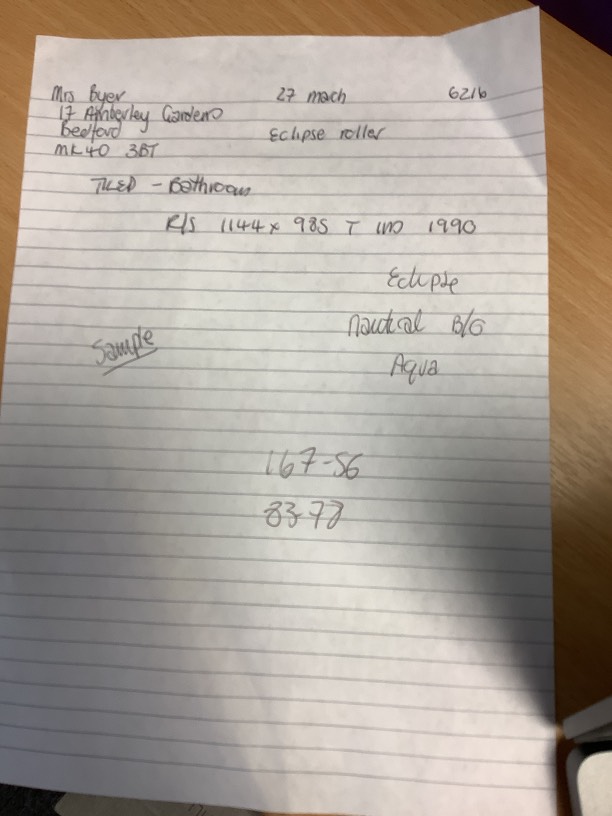 Mrs Byer 27 mach 6216
17 Amberley Gardens
Bedford Eclipse roller
MK40 3BT
TILED - Bathroom
R/S 1144 x 985 T 1990
Eclipse
Nautical B/G
Sample
Aqua
167-56
83-78